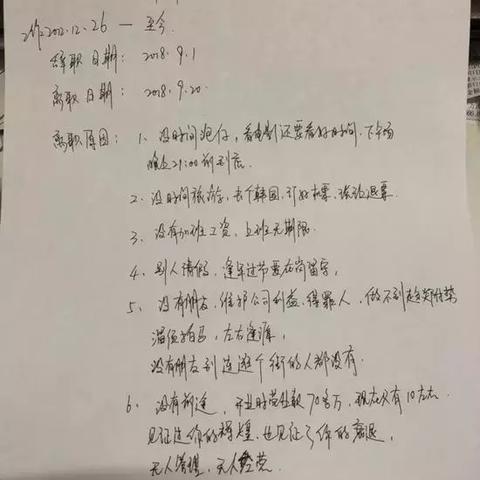 工作2012.12.26 — 至今
辞职日期：2018.9.1
离职日期：2018.9.20
离职原因：1、没时间泡仔，看电影还要看好时间，下午场
晚上21:00前到底
2、没时间旅游，去个韩国，订好机票，被迫退票
3、没有加班工资，上班无期限
4、别人请假，逢年过节要在岗留守，
5、没有朋友，维护公司利益，得罪人，做不到趋炎附势
溜须拍马，左右逢源，
没有朋友到连逛个街的人都没有.
6、没有前途，开业时营业额70多万，现在只有10左右
见证过你的辉煌，也见证了你的衰退，
无人管理，无人经营